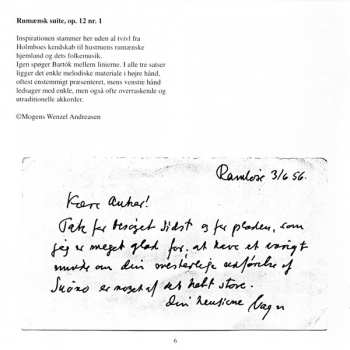 Rumænsk suite, op. 12 nr. 1
Inspirationen stammer her uden al tvivl fra
Holmboes kendskab til hustruens rumænske
hjemland og dets folkemusik.
Igen spøger Bartók mellem linierne. I alle tre satser
ligger det enkle melodiske materiale i højre hånd,
oftest enstemmigt præsenteret, mens venstre hånd
ledsager med enkle, men også ofte overraskende og
utraditionelle akkorder.
©Mogens Wenzel Andreasen
Ramløse 3/6 56.
Kære Anker!
Tak for besøget sidst og for pladen, som
jeg er meget glad for. at have et varigt
minde om din mesterlige udførelse af
Suono er noget af det helt store.
din hengivne Vagn
6